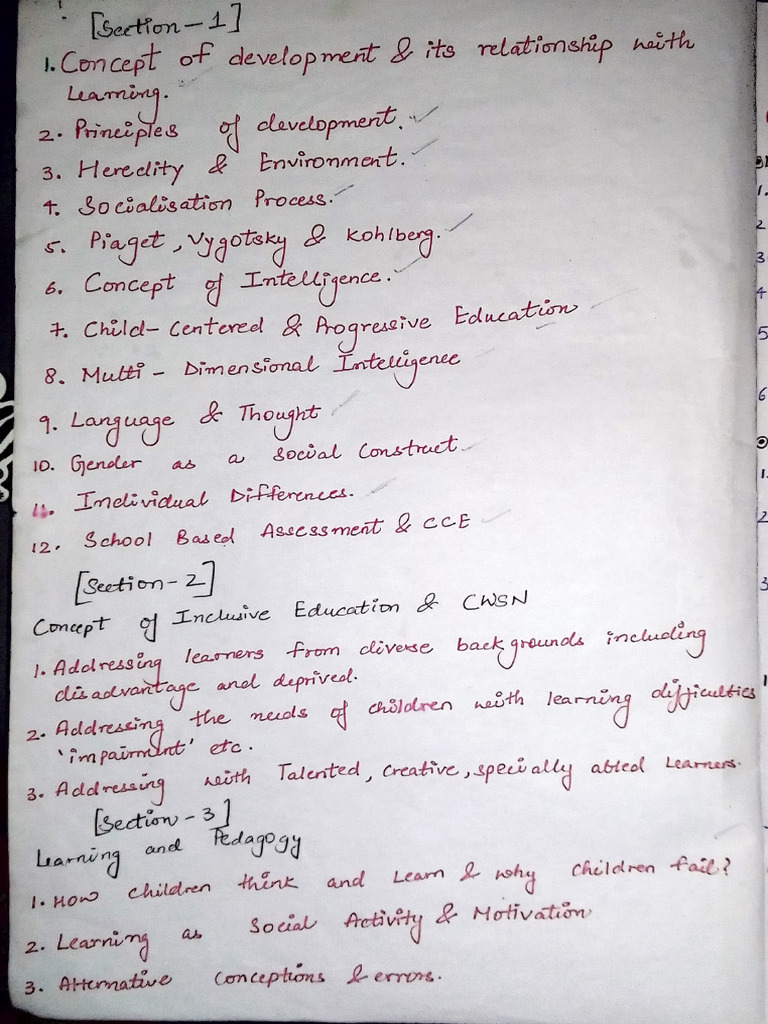 [Section-1]
1. Concept of development & its relationship with
Learning.
2. Principles of development.
3. Heredity & Environment.
4. Socialisation Process.
5. Piaget, Vygotsky & Kohlberg.
6. Concept of Intelligence.
7. Child-Centered & Progressive Education
8. Multi-Dimensional Intelligence
9. Language & Thought
10. Gender as a Social Construct
11. Individual Differences.
12. School Based Assessment & CCE
[Section-2]
Concept of Inclusive Education & CWSN
1. Addressing learners from diverse backgrounds including
disadvantage and deprived.
2. Addressing the needs of children with learning difficulties
'impairment' etc.
3. Addressing with Talented, Creative, specially abled Learners.
[Section-3]
Learning and Pedagogy
1. How children think and Learn & why children fail?
2. Learning as Social Activity & Motivation
3. Alternative conceptions & errors.